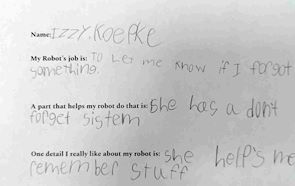 Name: Izzy.Koepke
My Robot's job is: To Let me know if I forgot
something.
A part that helps my robot do that is: She has a dont
forget sistem
One detail I really like about my robot is: she help's me
remember stuff